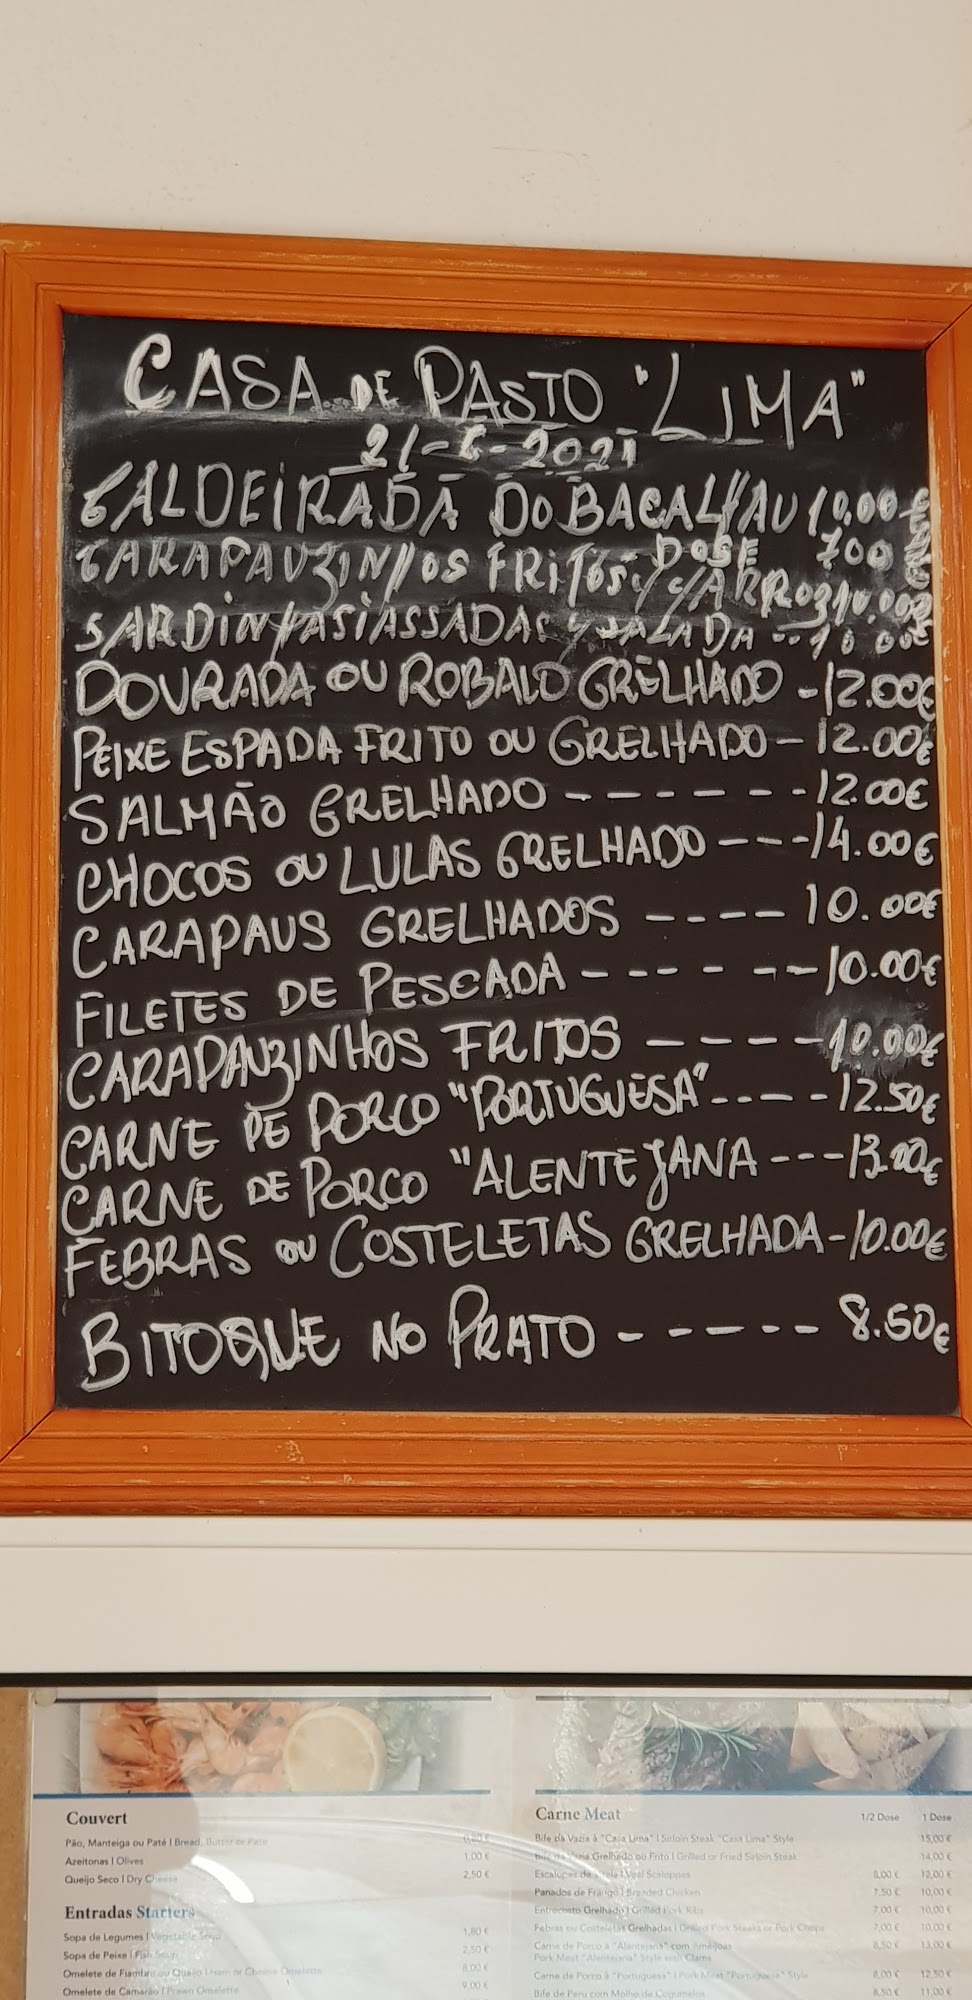 CASA DE PASTO "LIMA"
21-6-2021
CALDEIRADA DO BACALHAU 10.00€
DOSE 700
CARAPAUZINHOS FRITOS C/ARROZ 10.00€
SARDINHAS ASSADAS SALADA -- 10.00€
DOURADA OU ROBALO GRELHADO - 12.00€
PEIXE ESPADA FRITO OU GRELHADO - 12.00€
SALMÃO GRELHADO - - - - - - - 12.00€
CHOCOS OU LULAS GRELHADO - - - 14.00€
CARAPAUS GRELHADOS - - - - 10.00€
FILETES DE PESCADA - - - - - - 10.00€
CARAPAUZINHOS FRITOS - - - - - 10.00€
CARNE DE PORCO "PORTUGUESA" - - - - - 12.50€
CARNE DE PORCO "ALENTEJANA - - - 13.00€
FEBRAS OU COSTELETAS GRELHADA - 10.00€
BITOQUE NO PRATO - - - - - - 8.50€
Couvert
Pão, Manteiga ou Paté | Bread, Butter or Pate
Azeitonas | Olives 1,00 €
Queijo Seco | Dry Cheese 2,50 €
Entradas Starters
Sopa de Legumes | Vegetable Soup 1,80 €
Sopa de Peixe | Fish Soup 2,50 €
Omelete de Fiambre ou Queijo | Ham or Cheese Omelette 8,00 €
Omelete de Camarão | Prawn Omelette 9,00 €
Carne Meat 1/2 Dose 1 Dose
Bife da Vazia à "Casa Lima" | Sirloin Steak "Casa Lima" Style 15,00 €
Bife da Vazia Grelhado ou Frito | Grilled or Fried Sirloin Steak 14,00 €
Escalopes de Vitela | Veal Scaloppes 8,00 € 12,00 €
Panados de Frango | Breaded Chicken 7,50 € 10,00 €
Entrecosto Grelhado | Grilled Pork Ribs 7,00 € 10,00 €
Febras ou Costeletas Grelhadas | Grilled Pork Steaks or Pork Chops 7,00 € 10,00 €
Carne de Porco à "Alentejana" com Ameijoas 8,50 € 13,00 €
Pork Meat "Alentejana" Style with Clams
Carne de Porco à "Portuguesa" | Pork Meat "Portuguesa" Style 8,00 € 12,50 €
Bife de Peru com Molho de Cogumelos 8,50 € 11,00 €